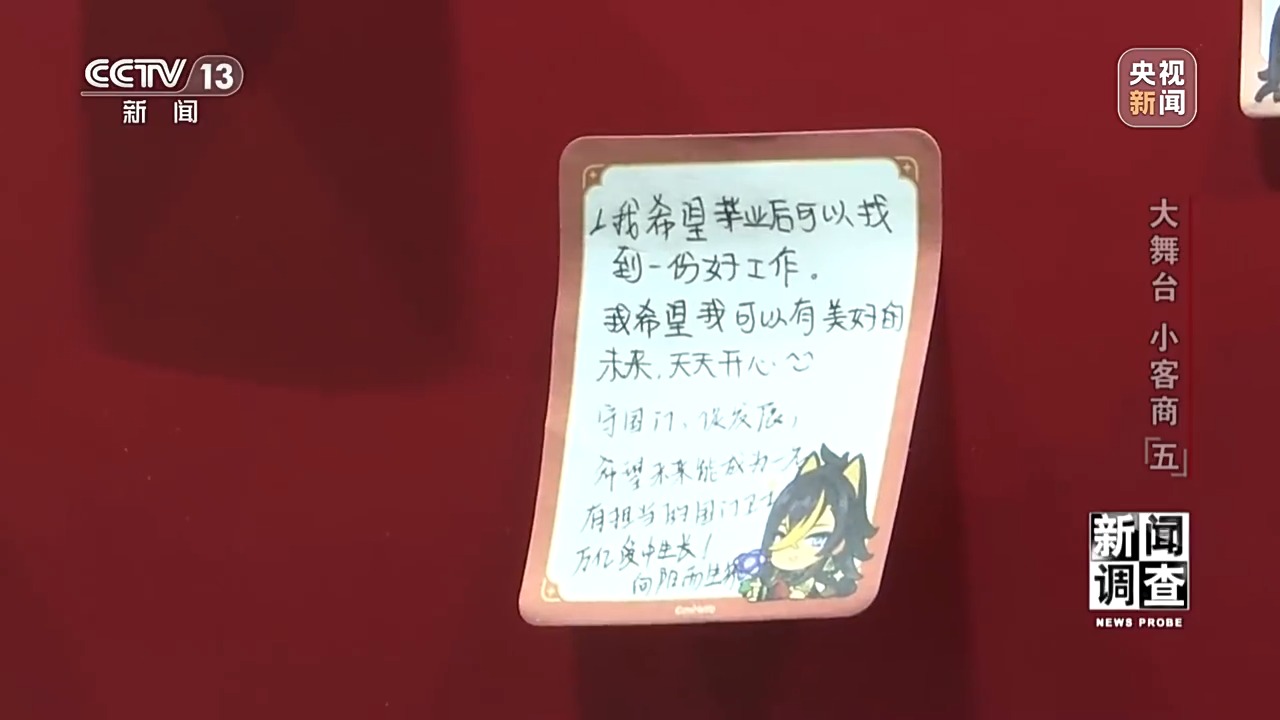 CCTV 13
新闻
央视
新闻
大舞台 小客商「五」
新闻
调查
NEWS PROBE
1.我希望毕业后可以找
到一份好工作。
我希望我可以有美好的
未来,天天开心
守国门、促发展,
希望未来能成为一名
有担当的国门卫士
万亿爱中生长!
向阳而生